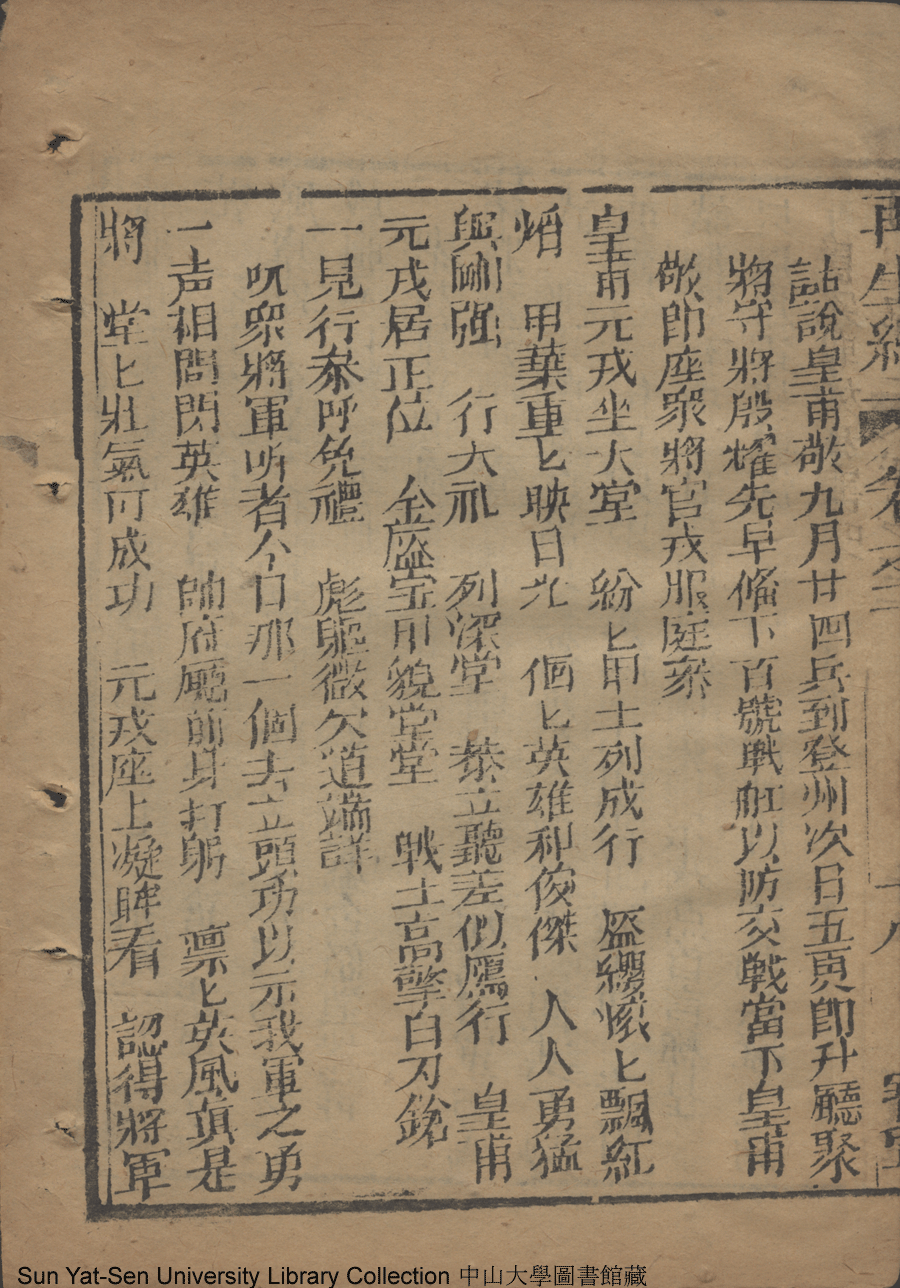 再生緣
十八
話說皇甫敬九月廿四兵到登州次日五更即升廳聚
將守將殷燿先早俻下百號戰舡以防交戰當下皇甫
敬即座眾將官戎服庭叅
皇甫元戎坐大堂 紛匕甲士列成行 盔纓憿匕飄紅
焰 甲葉重匕映日光 個匕英雄和俊傑 人人勇猛
與剛强 行大礼 列深堂 恭立聽差似鴈行 皇甫
元戎居正位 金盔宝甲貌堂堂 戰士高擎白刃鋭
一見行叅呼免禮 彪軀微欠道端詳
叭眾將軍听者今日那一個去立頭功以示我軍之勇
一声相問閃英雄 帥府廳前身打躬 凛匕英風眞是
將 堂上壯氣可成功 元戎座上凝眸看 認得將軍
Sun Yat-Sen University Library Collection 中山大學圖書館藏